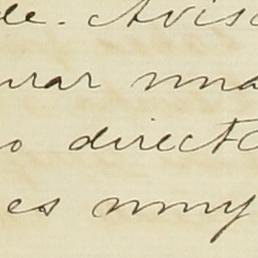 de. Avis
urar una
o direct
es muy